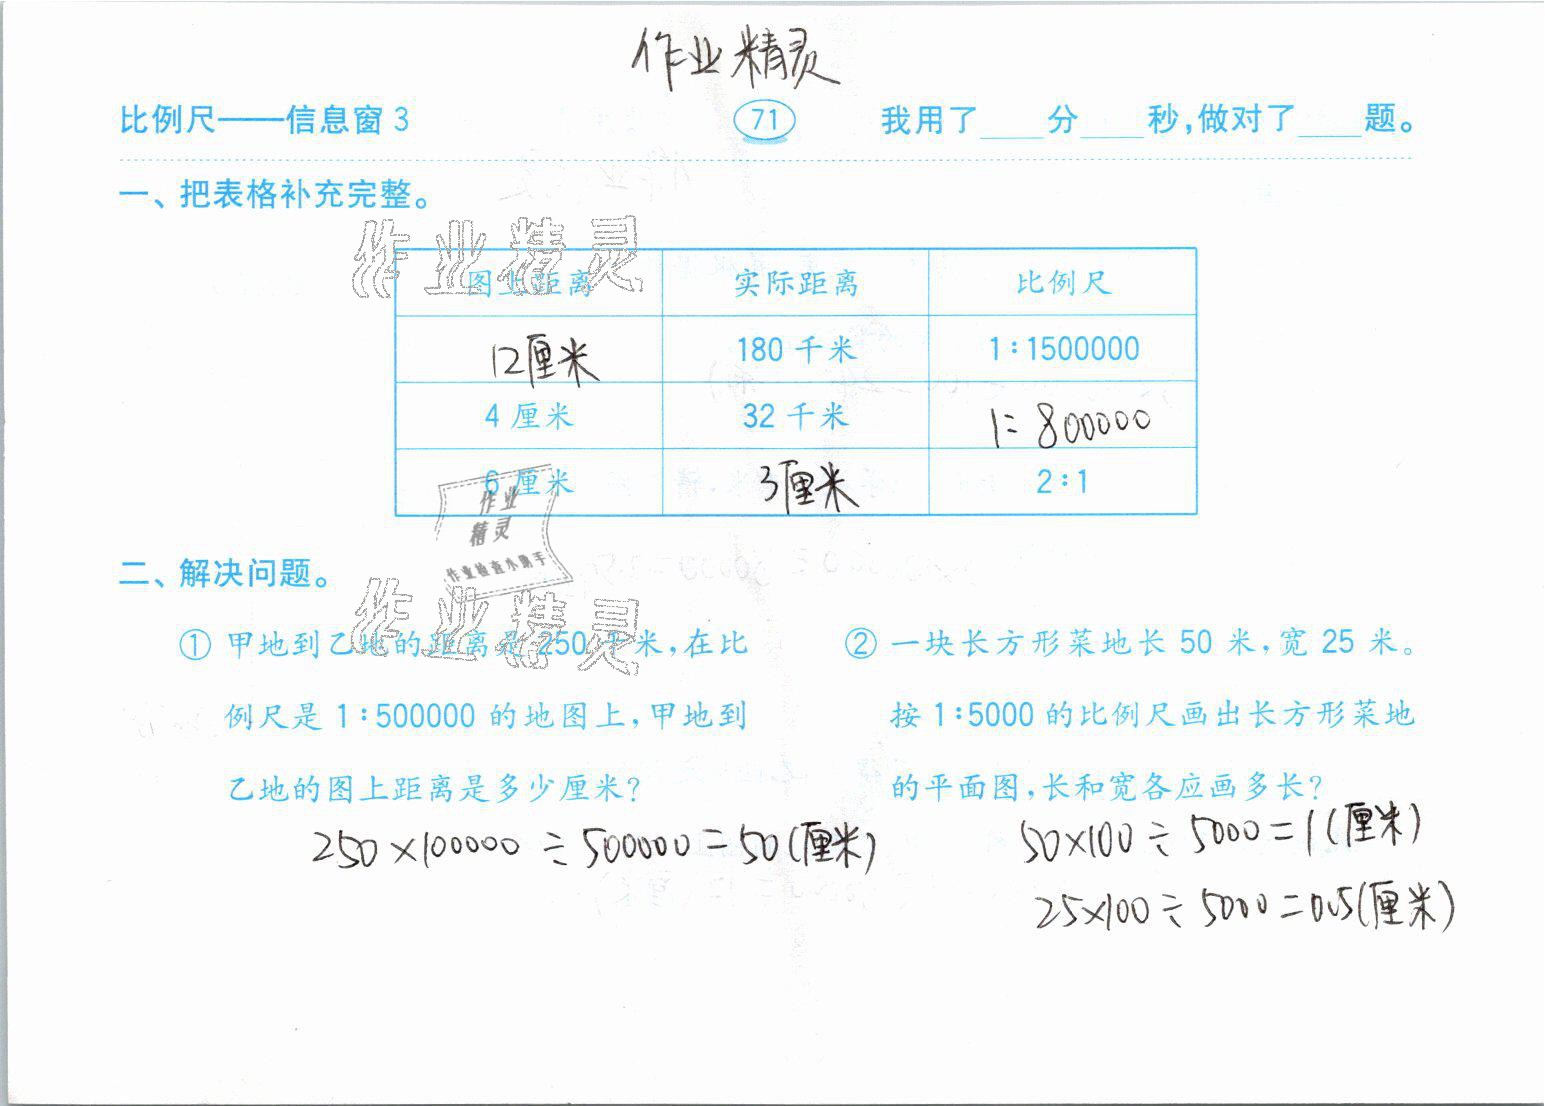 作业精灵
比例尺——信息窗3 71 我用了____分____秒,做对了____题。
一、把表格补充完整。
作业精灵
图上距离 实际距离 比例尺
12厘米 180千米 1:1500000
4厘米 32千米 1:800000
6厘米 3厘米 2:1
作业
精灵
作业检查小助手
二、解决问题。
作业精灵
① 甲地到乙地的距离是250千米,在比
例尺是1:500000的地图上,甲地到
乙地的图上距离是多少厘米?
250×100000÷500000=50(厘米)
② 一块长方形菜地长50米,宽25米。
按1:5000的比例尺画出长方形菜地
的平面图,长和宽各应画多长?
50×100÷5000=1(厘米)
25×100÷5000=0.5(厘米)